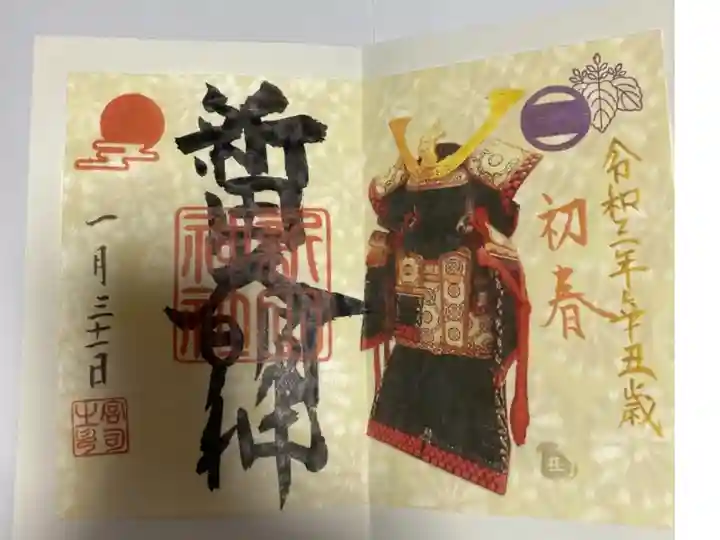 令和三年辛丑歳
初春
新田大明神
新田神社
一月三十一日
宮司之印